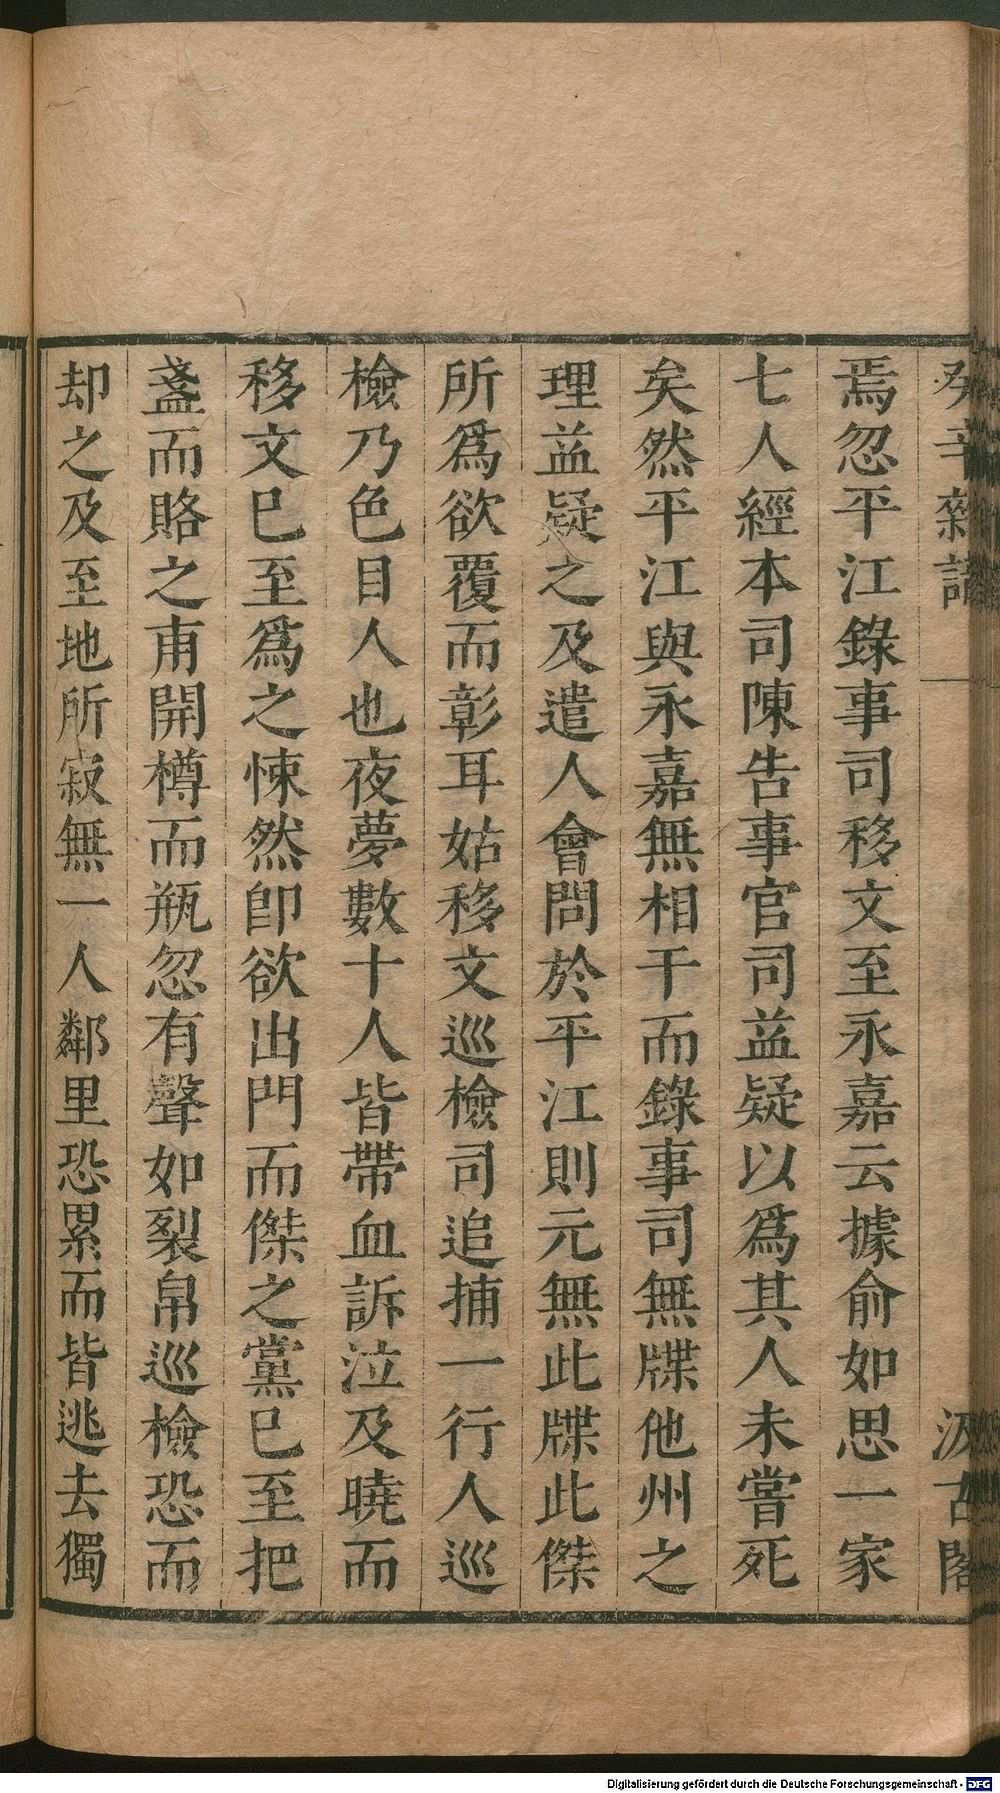 癸辛雜識
汲古閣
焉忽平江錄事司移文至永嘉云據俞如思一家
七人經本司陳告事官司益疑以爲其人未嘗死
矣然平江與永嘉無相干而錄事司無牒他州之
理益疑之及遣人會問於平江則元無此牒此傑
所爲欲覆而彰耳姑移文巡檢司追捕一行人巡
檢乃色目人也夜夢數十人皆帶血訴泣及曉而
移文已至爲之悚然卽欲出門而傑之黨已至把
盞而賂之甫開樽而瓶忽有聲如裂帛巡檢恐而
却之及至地所寂無一人鄰里恐累而皆逃去獨
Digitalisierung gefördert durch die Deutsche Forschungsgemeinschaft - DFG